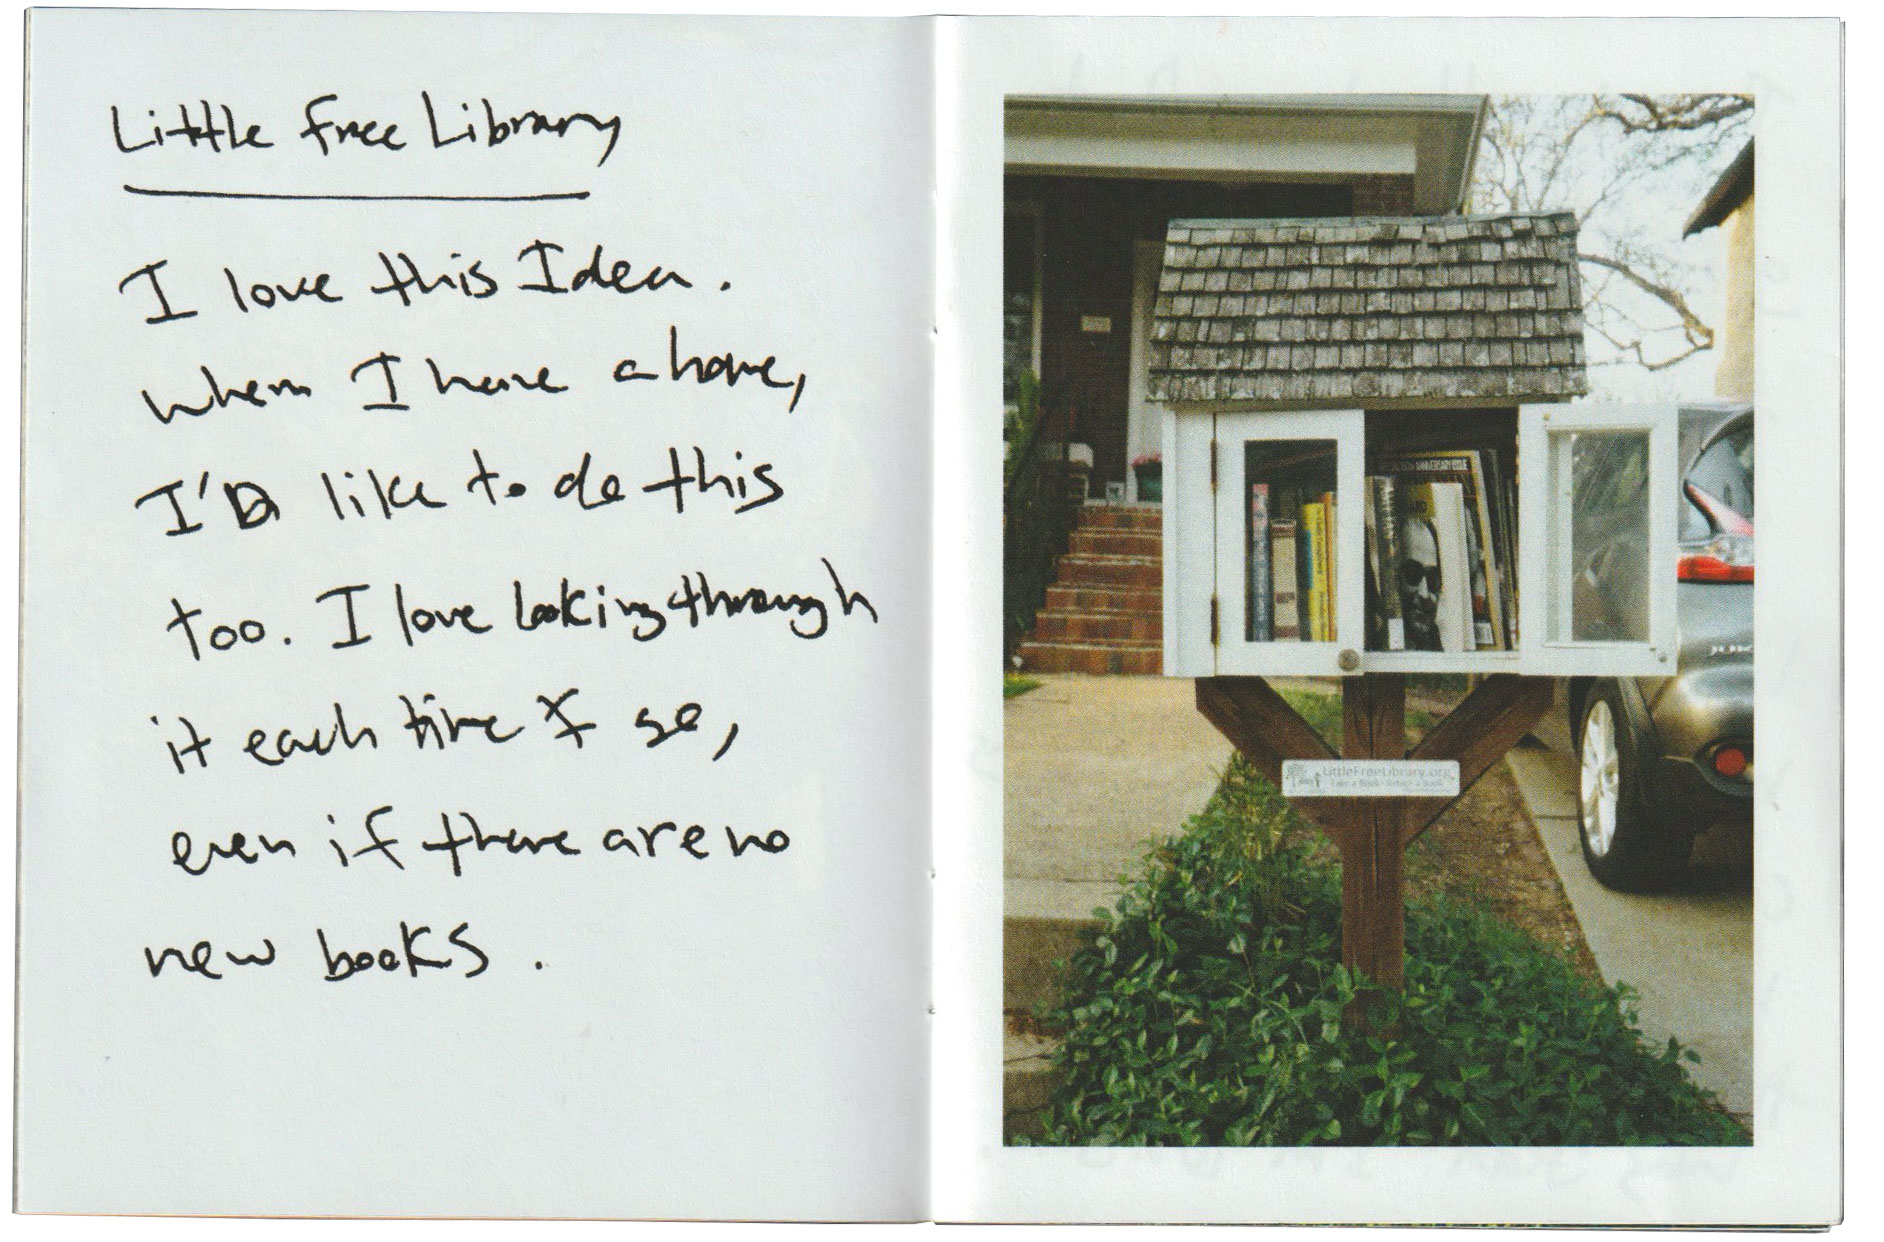 Little free Library
I love this Idea.
when I have a home,
I'D like to do this
too. I love looking through
it each time I go,
even if there are no
new books.
ANNIVERSARY ISSUE
LittleFreeLibrary.org
Take a Book • Return a Book